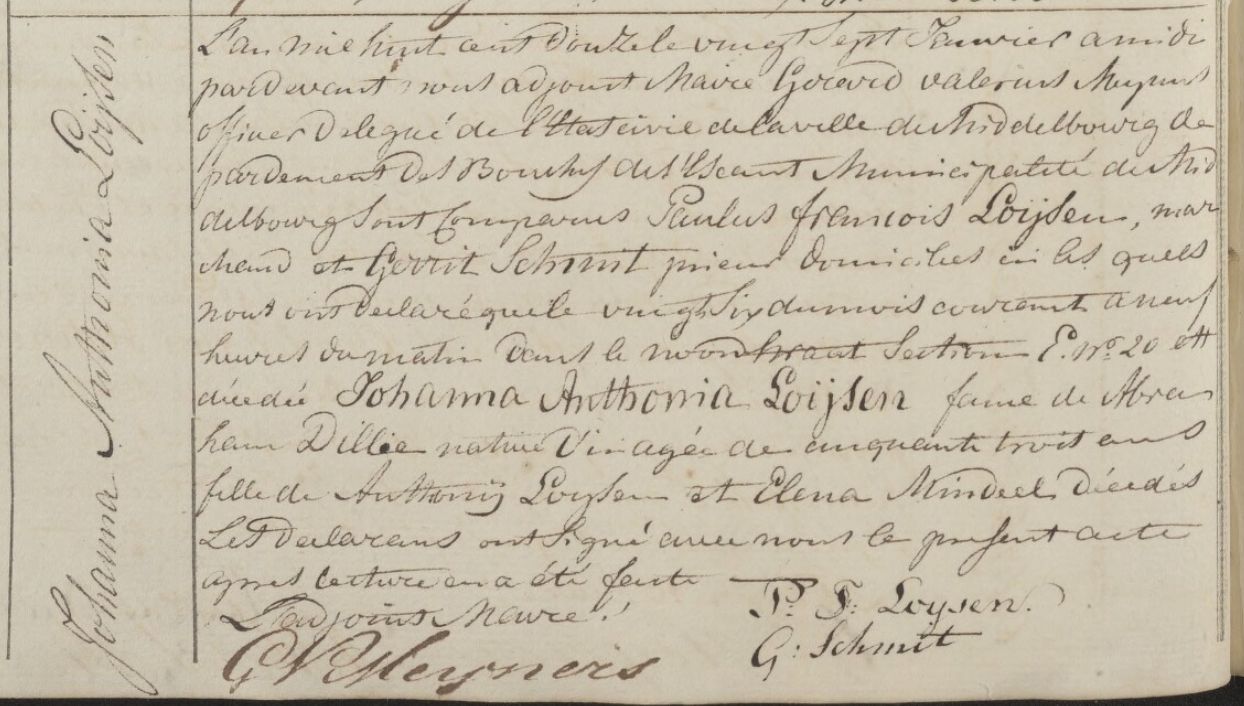 Johanna Anthonia Loijsen
L'an mil huit cent douze le vingt Sept Janvier a midi
pardevant nous adjoint Maire Gerard Valerius Meyners
officier Delegué de l'Etat civie de la ville de Middelbourg De
pardement Des Bouches de l'Escaut Municipalité de Mid
delbourg Sont Comparus Paulus francois Loijsen, mar
chand et Gerrit Schmit prieur Domicilies ici les quels
nous ont Declaré que le vingt Six du mois courant a neuf
heures du matin Dans le noordstraat Section E. no. 20 est
décédé Johanna Anthonia Loijsen fame de Abra
ham Dillie native D'ici agée de cinquante trois ans
fille de Anthonij Loysen et Elena Mindeel décédés
Les Declarans ont Signé avec nous le present acte
apres lecture en a été faite
L'adjoint Maire!
P: F: Loysen.
GVMeyners
G: Schmit